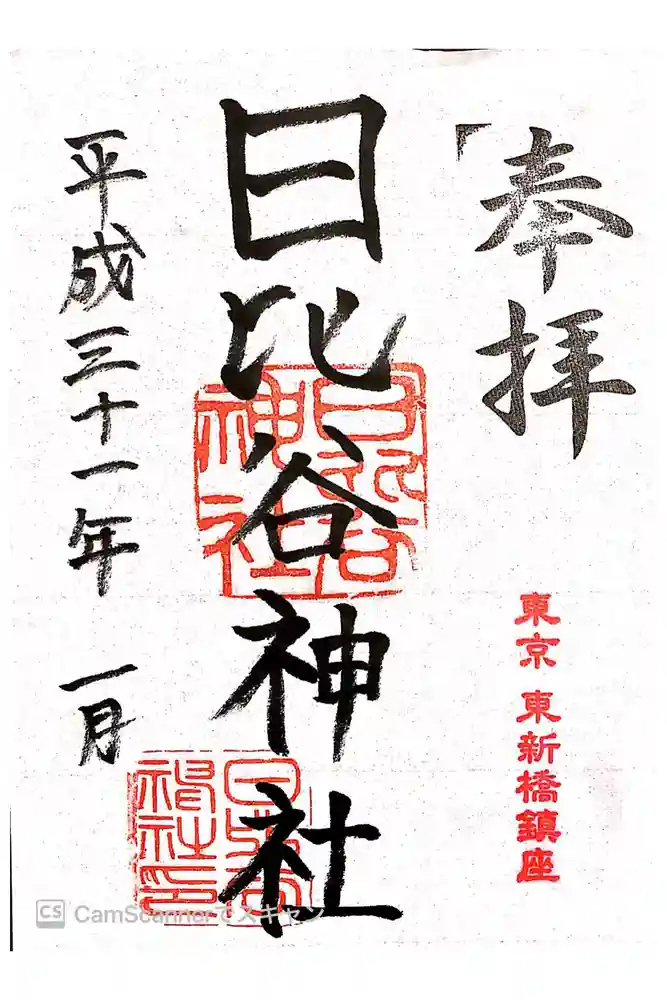 奉拝
東京 東新橋鎮座
日比谷神社
日比谷神社
平成三十一年 一月
CS CamScannerでスキャン